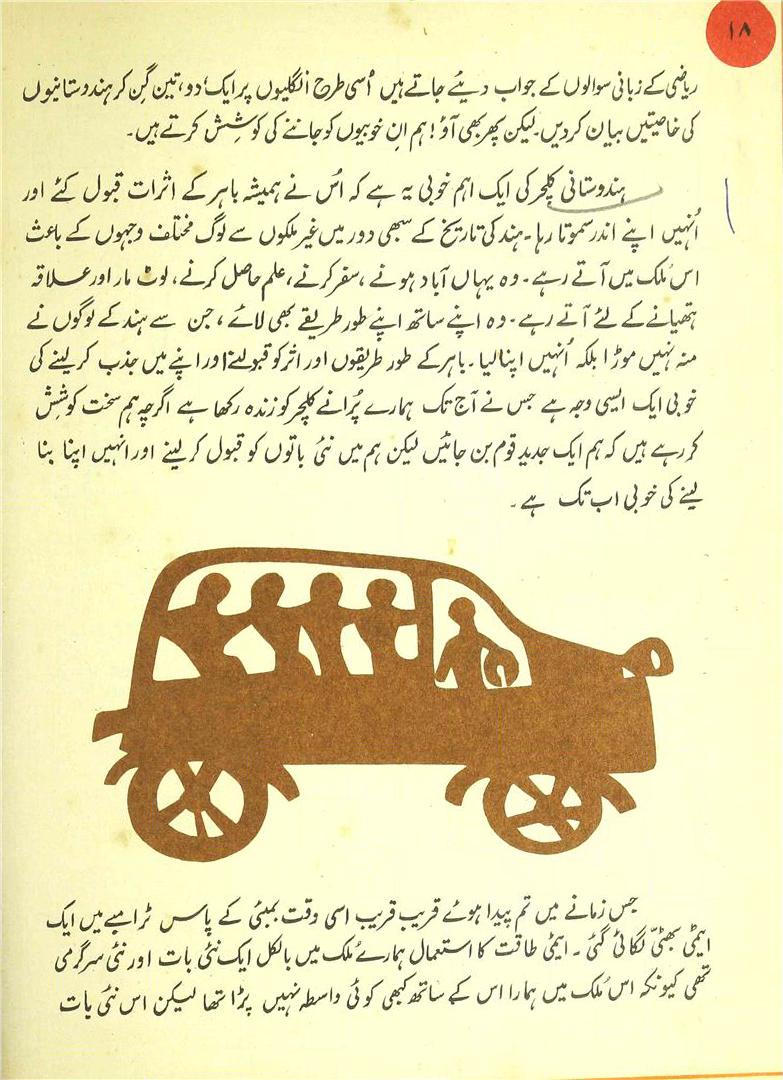 ۱۸
ریاضی کے زبانی سوالوں کے جواب دیئے جاتے ہیں اُسی طرح انگلیوں پر ایک، دو، تین گِن کر ہندوستانیوں
کی خاصیتیں بیان کردیں۔ لیکن پھر بھی آؤ! ہم ان خوبیوں کو جاننے کی کوشِش کرتے ہیں۔
ہندوستانی کلچر کی ایک اہم خوبی یہ ہے کہ اُس نے ہمیشہ باہر کے اثرات قبول کئے اور
اُنہیں اپنے اندر سموتا رہا۔ ہند کی تاریخ کے سبھی دور میں غیر ملکوں سے لوگ مختلف وجہوں کے باعث
اس مُلک میں آتے رہے۔ وہ یہاں آباد ہونے، سفر کرنے، علم حاصل کرنے، لوٹ مار اور علاقہ
ہتھیانے کے لئے آتے رہے۔ وہ اپنے ساتھ اپنے طور طریقے بھی لائے، جن سے ہند کے لوگوں نے
منہ نہیں موڑا بلکہ اُنہیں اپنا لیا۔ باہر کے طور طریقوں اور اثر کو قبولنے اور اپنے میں جذب کر لینے کی
خوبی ایک ایسی وجہ ہے جس نے آج تک ہمارے پُرانے کلچر کو زندہ رکھا ہے اگرچہ ہم سخت کوشِش
کر رہے ہیں کہ ہم ایک جدید قوم بن جائیں لیکن ہم میں نئی باتوں کو قبول کر لینے اور انہیں اپنا بنا
لینے کی خوبی اب تک ہے۔
جس زمانے میں تم پیدا ہوئے قریب قریب اسی وقت بمبئی کے پاس ٹرامبے میں ایک
ایٹمی بھٹّی لگائی گئی۔ ایٹمی طاقت کا استعمال ہمارے مُلک میں بالکل ایک نئی بات اور نئی سرگرمی
تھی کیونکہ اس مُلک میں ہمارا اس کے ساتھ کبھی کوئی واسطہ نہیں پڑا تھا لیکن اس نئی بات